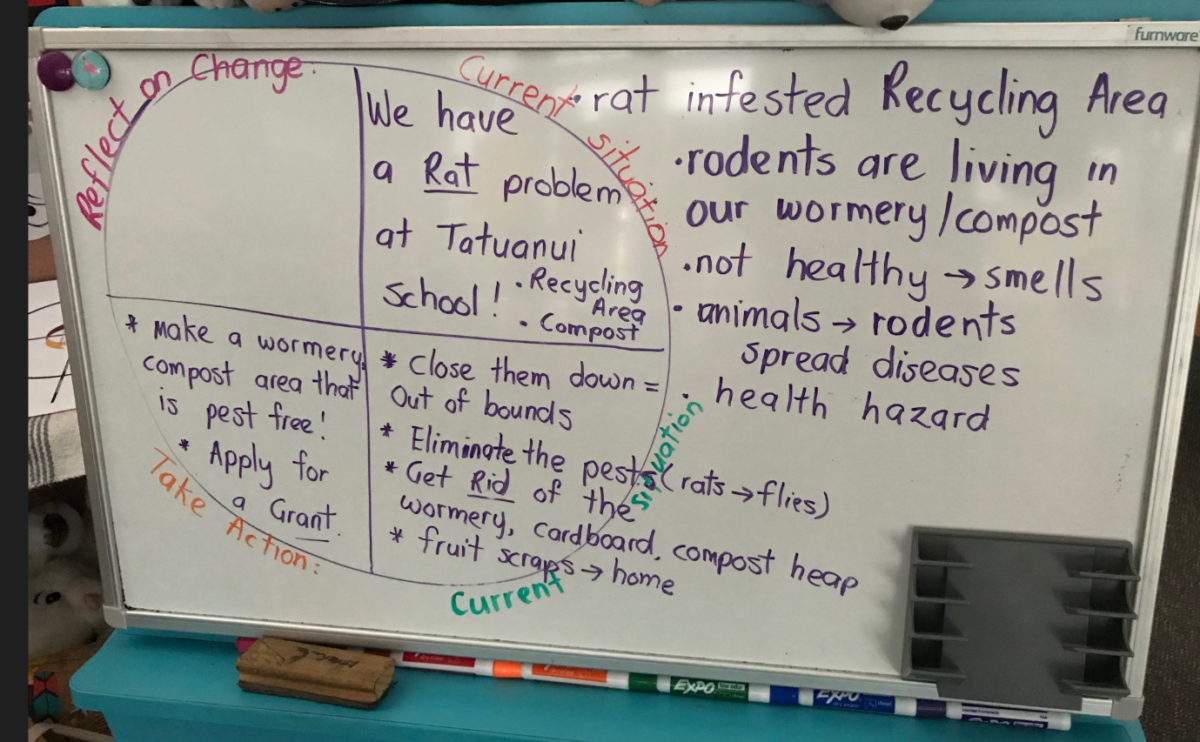 furnware
Reflect on Change:
Current situation
We have
a Rat problem
at Tatuanui
School!
• Recycling
Area
• Compost
• rat infested Recycling Area
• rodents are living in
our wormery/compost
• not healthy → smells
• animals → rodents
spread diseases
• health hazard
* Close them down =
Out of bounds
* Eliminate the pests (rats → flies)
* Get Rid of the
wormery, cardboard, compost heap
* fruit scraps → home
Current situation
* Make a wormery,
compost area that
is pest free!
* Apply for
a Grant.
Take Action:
EXPO
EXPO
EXPO